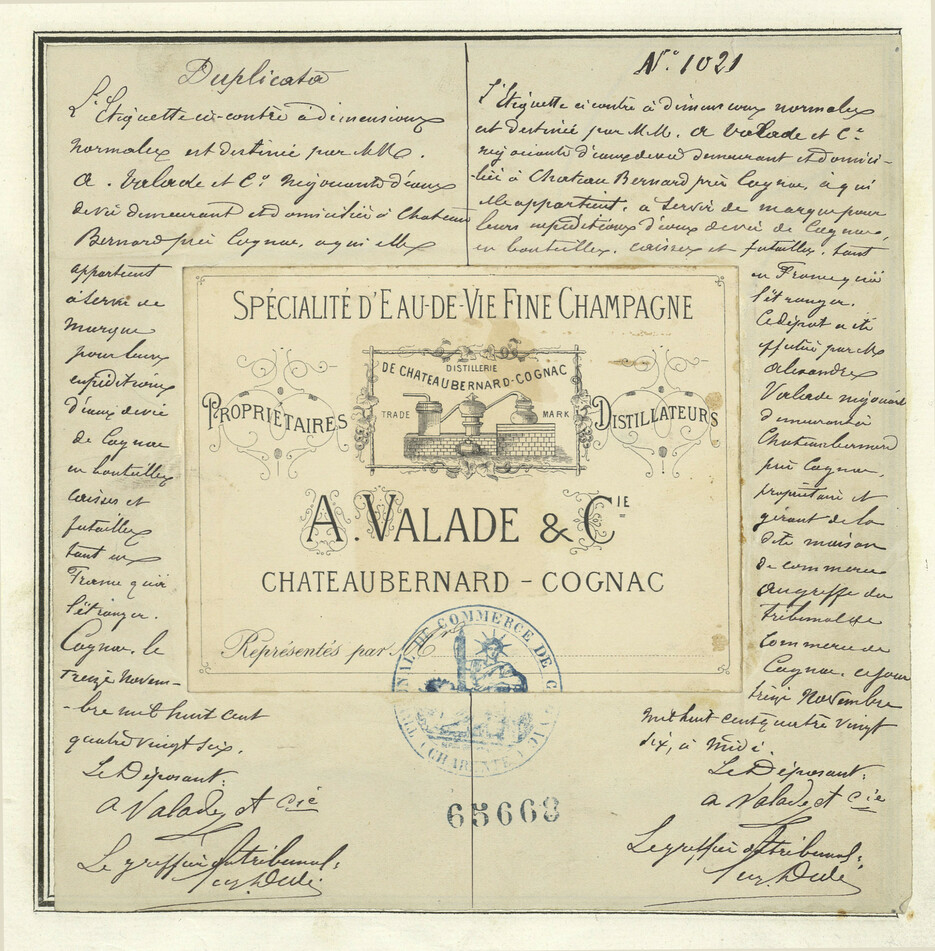 Duplicata
L'Etiquette ci-contre à dimensions
normales est destinée par MM.
A. Valade et Cie négociants d'eaux
de vie demeurant et domiciliés à Chateau
Bernard près Cognac, à qui elle
appartient
à servir de
marque
pour leurs
expéditions
d'eaux de vie
de Cognac
en bouteilles
caisses et
futailles
tant en
France qu'à
l'étranger.
Cognac, le
treize Novem-
-bre mil huit cent
quatre vingt six.
Le Déposant:
A Valade et Cie
Le greffier du tribunal:
N° 1021
L'Etiquette ci contre à dimensions normales
est destinée par MM. A Valade et Cie
négociants d'eaux de vie demeurant et domici-
-liés à Chateau Bernard près Cognac, à qui
elle appartient, à servir de marque pour
leurs expéditions d'eaux de vie de Cognac,
en bouteilles, caisses et futailles, tant
en France qu'à
l'étranger.
Ce dépot a été
effectué par M
Alexandre
Valade négociant
demeurant à
Chateaubernard
près Cognac,
propriétaire et
gérant de la
dite maison
de commerce
au greffe du
tribunal de
commerce de
Cognac, ce jour
treize Novembre
mil huit cent quatre vingt
six, à midi.
Le Déposant:
A Valade et Cie
Le greffier du tribunal:
SPÉCIALITÉ D'EAU-DE-VIE FINE CHAMPAGNE
PROPRIÉTAIRES
DISTILLERIE
DE CHATEAUBERNARD-COGNAC
TRADE MARK
DISTILLATEURS
A. VALADE & CIE
CHATEAUBERNARD - COGNAC
Représentés par M
TRIBUNAL DE COMMERCE DE COGNAC
(CHARENTE)
65668